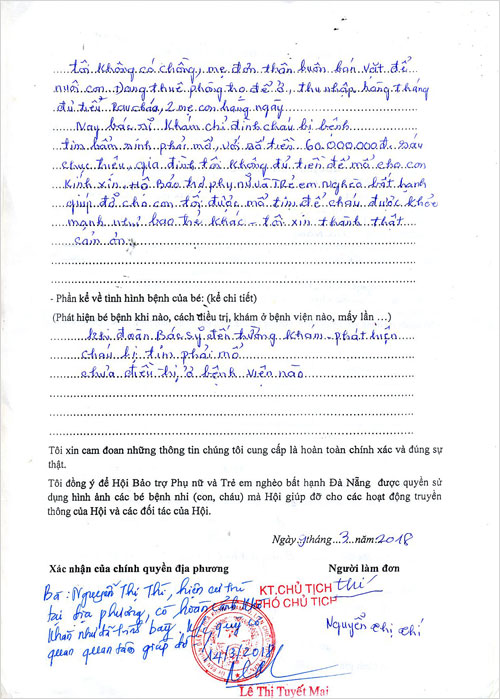 tôi không có chồng, mẹ đơn thân buôn bán vặt để
nuôi con. Đang thuê phòng trọ để ở, thu nhập hàng tháng
đủ tiền rau cháo, 2 mẹ con hằng ngày
Nay bác sĩ khám chỉ định cháu bị bệnh
tim bẩm sinh phải mổ, với số tiền 60.000.000đ.
gia đình tôi không đủ tiền để mổ cho con
Kính xin. Hội Bảo trợ phụ nữ và Trẻ em nghèo bất hạnh
giúp đỡ cho con tôi được mổ tim để cháu được khỏe
mạnh như bao trẻ khác - tôi xin thành thật
cảm ơn
- Phần kể về tình hình bệnh của bé: (kể chi tiết)
(Phát hiện bé bệnh khi nào, cách điều trị, khám ở bệnh viện nào, mấy lần ...)
khi đoàn Bác sỹ đến trường khám - phát hiện
cháu bị tim phải mổ
chưa điều trị ở bệnh viện nào
Tôi xin cam đoan những thông tin chúng tôi cung cấp là hoàn toàn chính xác và đúng sự
thật.
Tôi đồng ý để Hội Bảo trợ Phụ nữ và Trẻ em nghèo bất hạnh Đà Nẵng được quyền sử
dụng hình ảnh các bé bệnh nhi (con, cháu) mà Hội giúp đỡ cho các hoạt động truyền
thông của Hội và các đối tác của Hội.
Ngày 9 tháng 3 năm 2018
Xác nhận của chính quyền địa phương
Người làm đơn
Bà: Nguyễn Thị Thí, hiện cư trú
tại địa phương, có hoàn cảnh khó
khăn như đã trình bày. Kính quý cơ
quan quan tâm giúp đỡ
14/3/2018
KT.CHỦ TỊCH
PHÓ CHỦ TỊCH
Thí
Nguyễn Thị Thí
Lê Thị Tuyết Mai